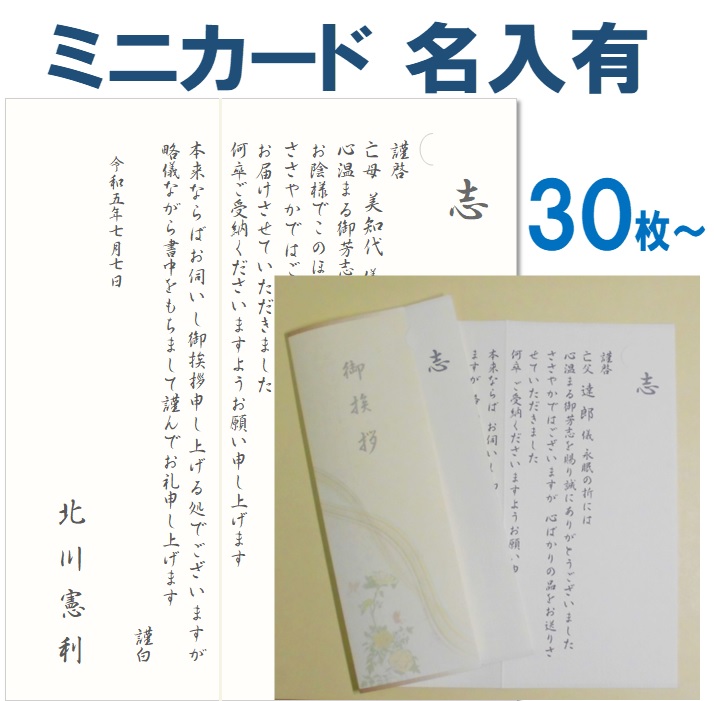 ミニカード 名入有
30枚～
志
謹啓
亡母 美知代
心温まる御芳志
お陰様でこのほ
ささやかではご
お届けさせていただきました
何卒ご受納くださいますようお願い申し上げます
本来ならばお伺いし御挨拶申し上げる処でございますが
略儀ながら書中をもちまして謹んでお礼申し上げます
謹白
令和五年七月七日
北川憲利
志
謹啓
亡父 達郎 儀 永眠の折には
心温まる御芳志を賜り誠にありがとうございました
ささやかではございますが 心ばかりの品をお送りさ
せていただきました
何卒 ご受納くださいますようお願い
本来ならば お伺いし
ますが
志
御挨拶